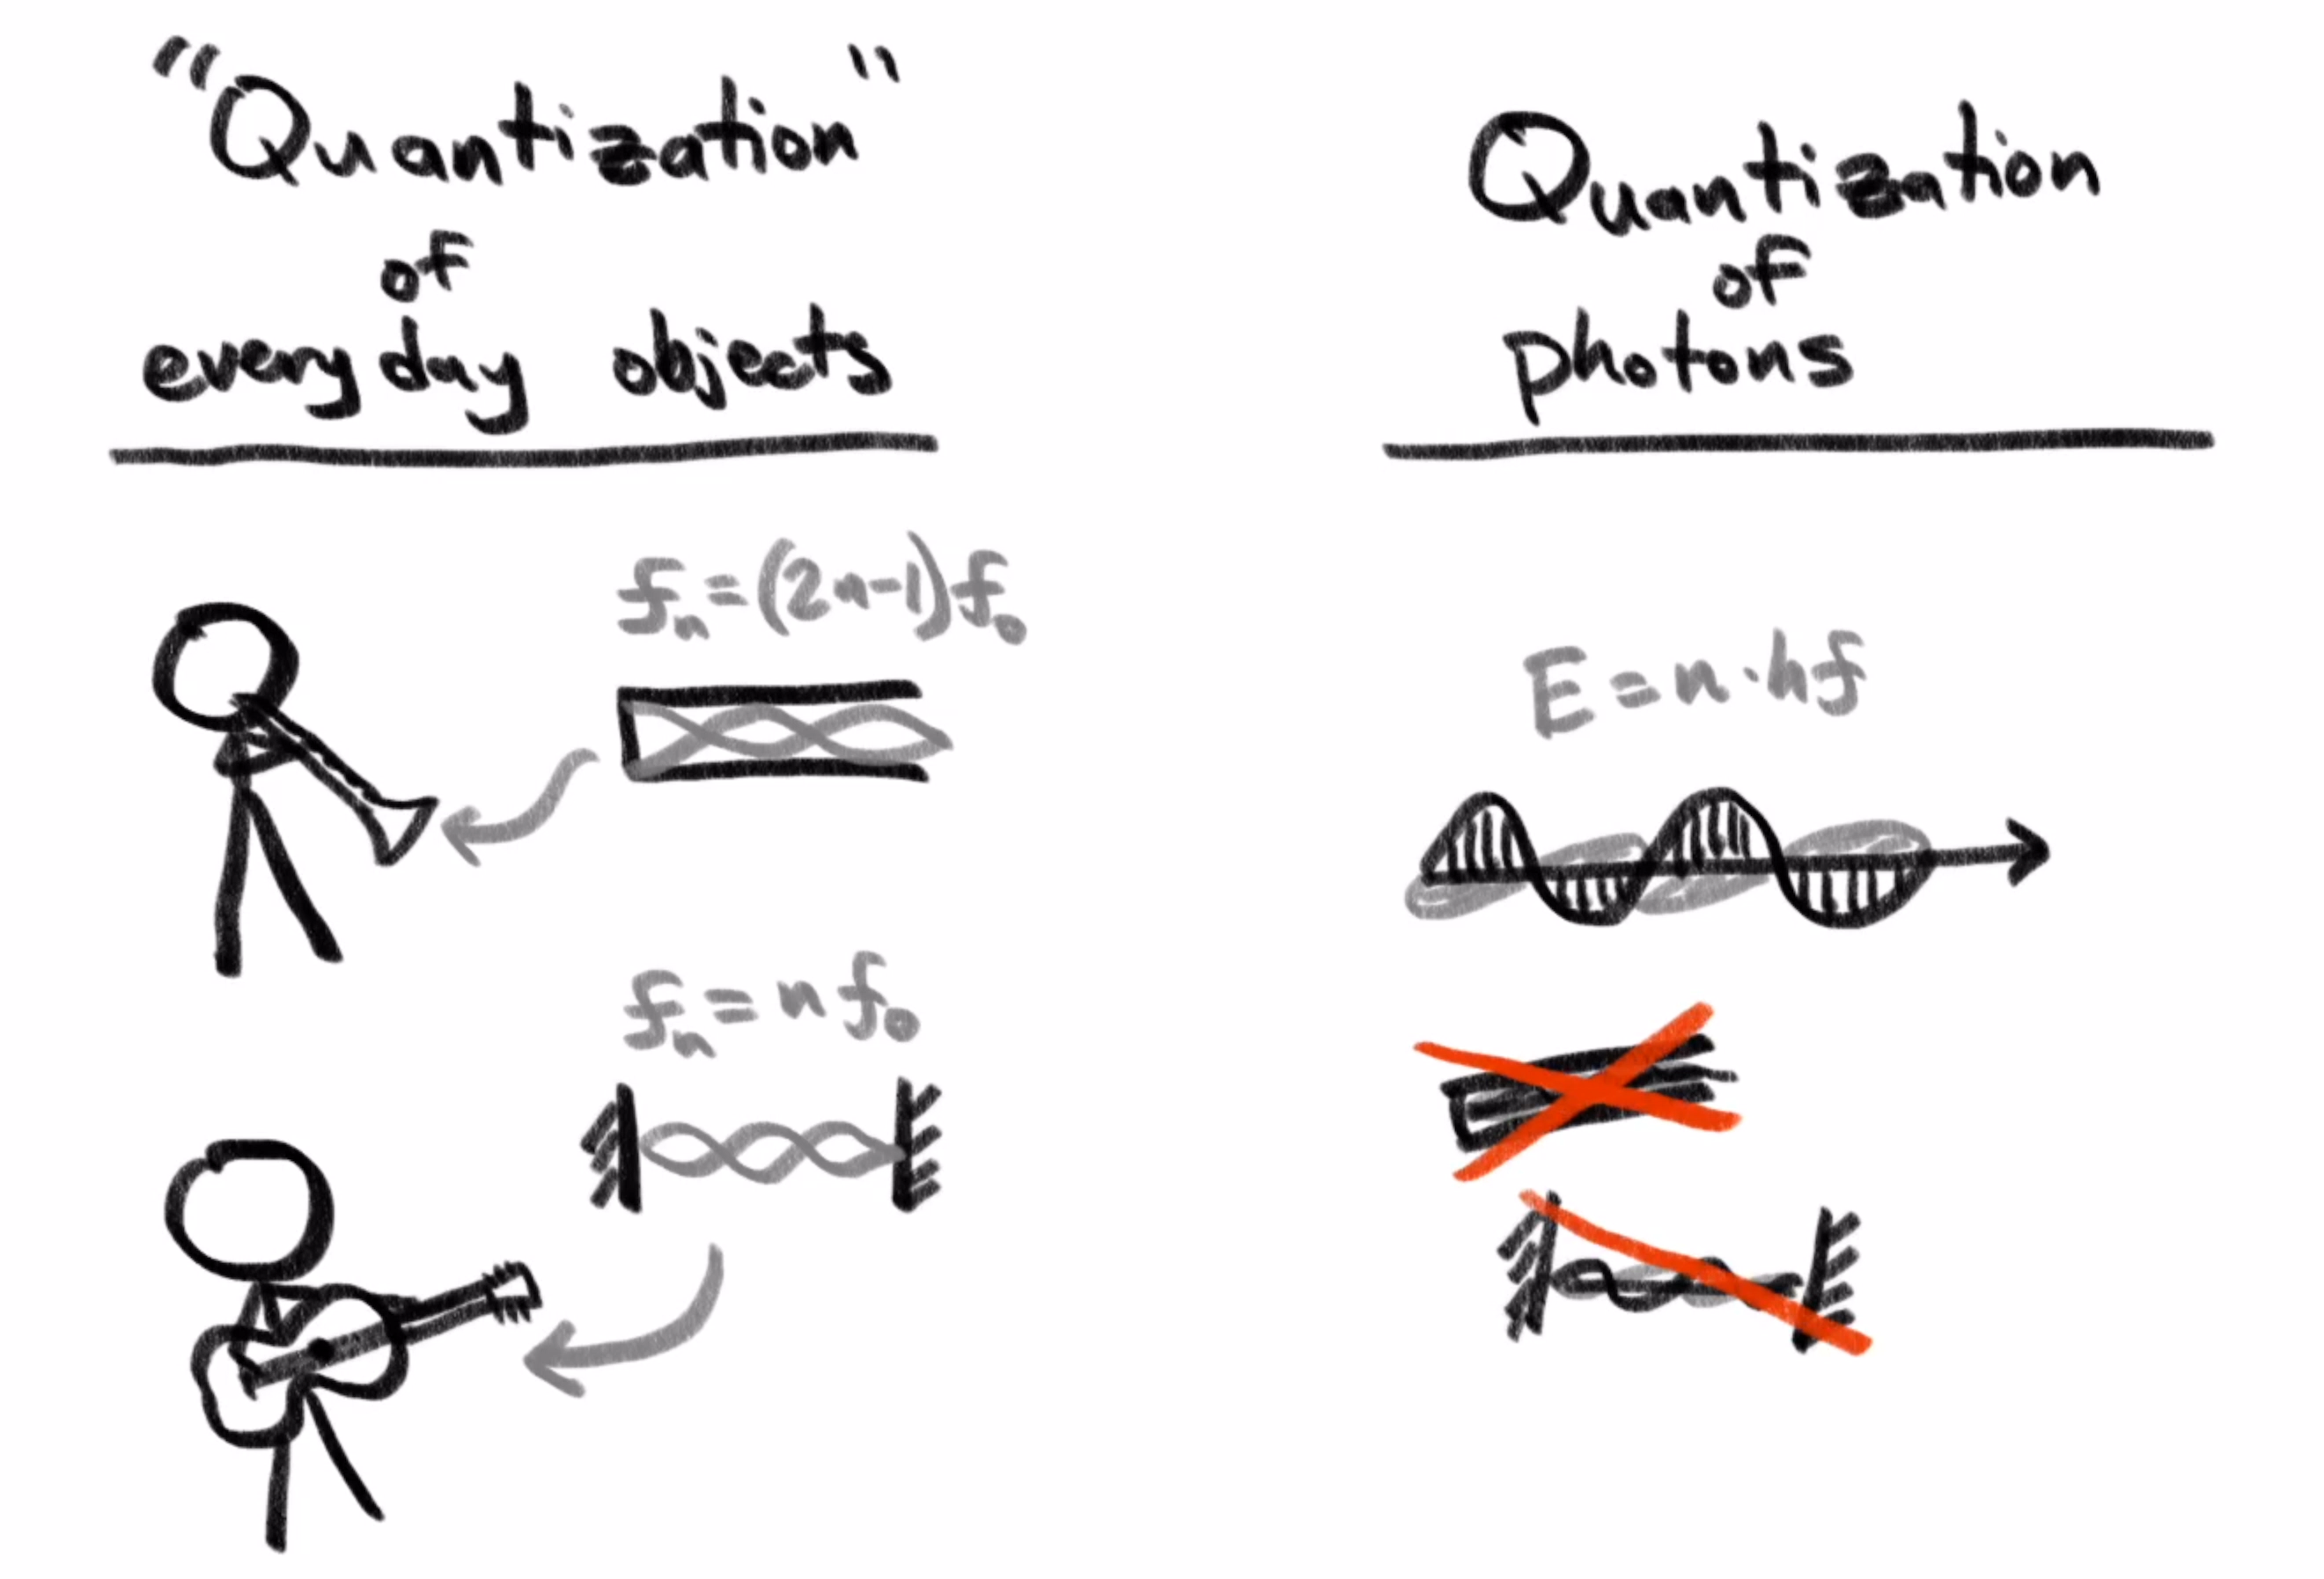 "Quantization"
of
everyday objects
fₙ = (2n-1)f₀
fₙ = n f₀
Quantization
of
photons
E = n · hf